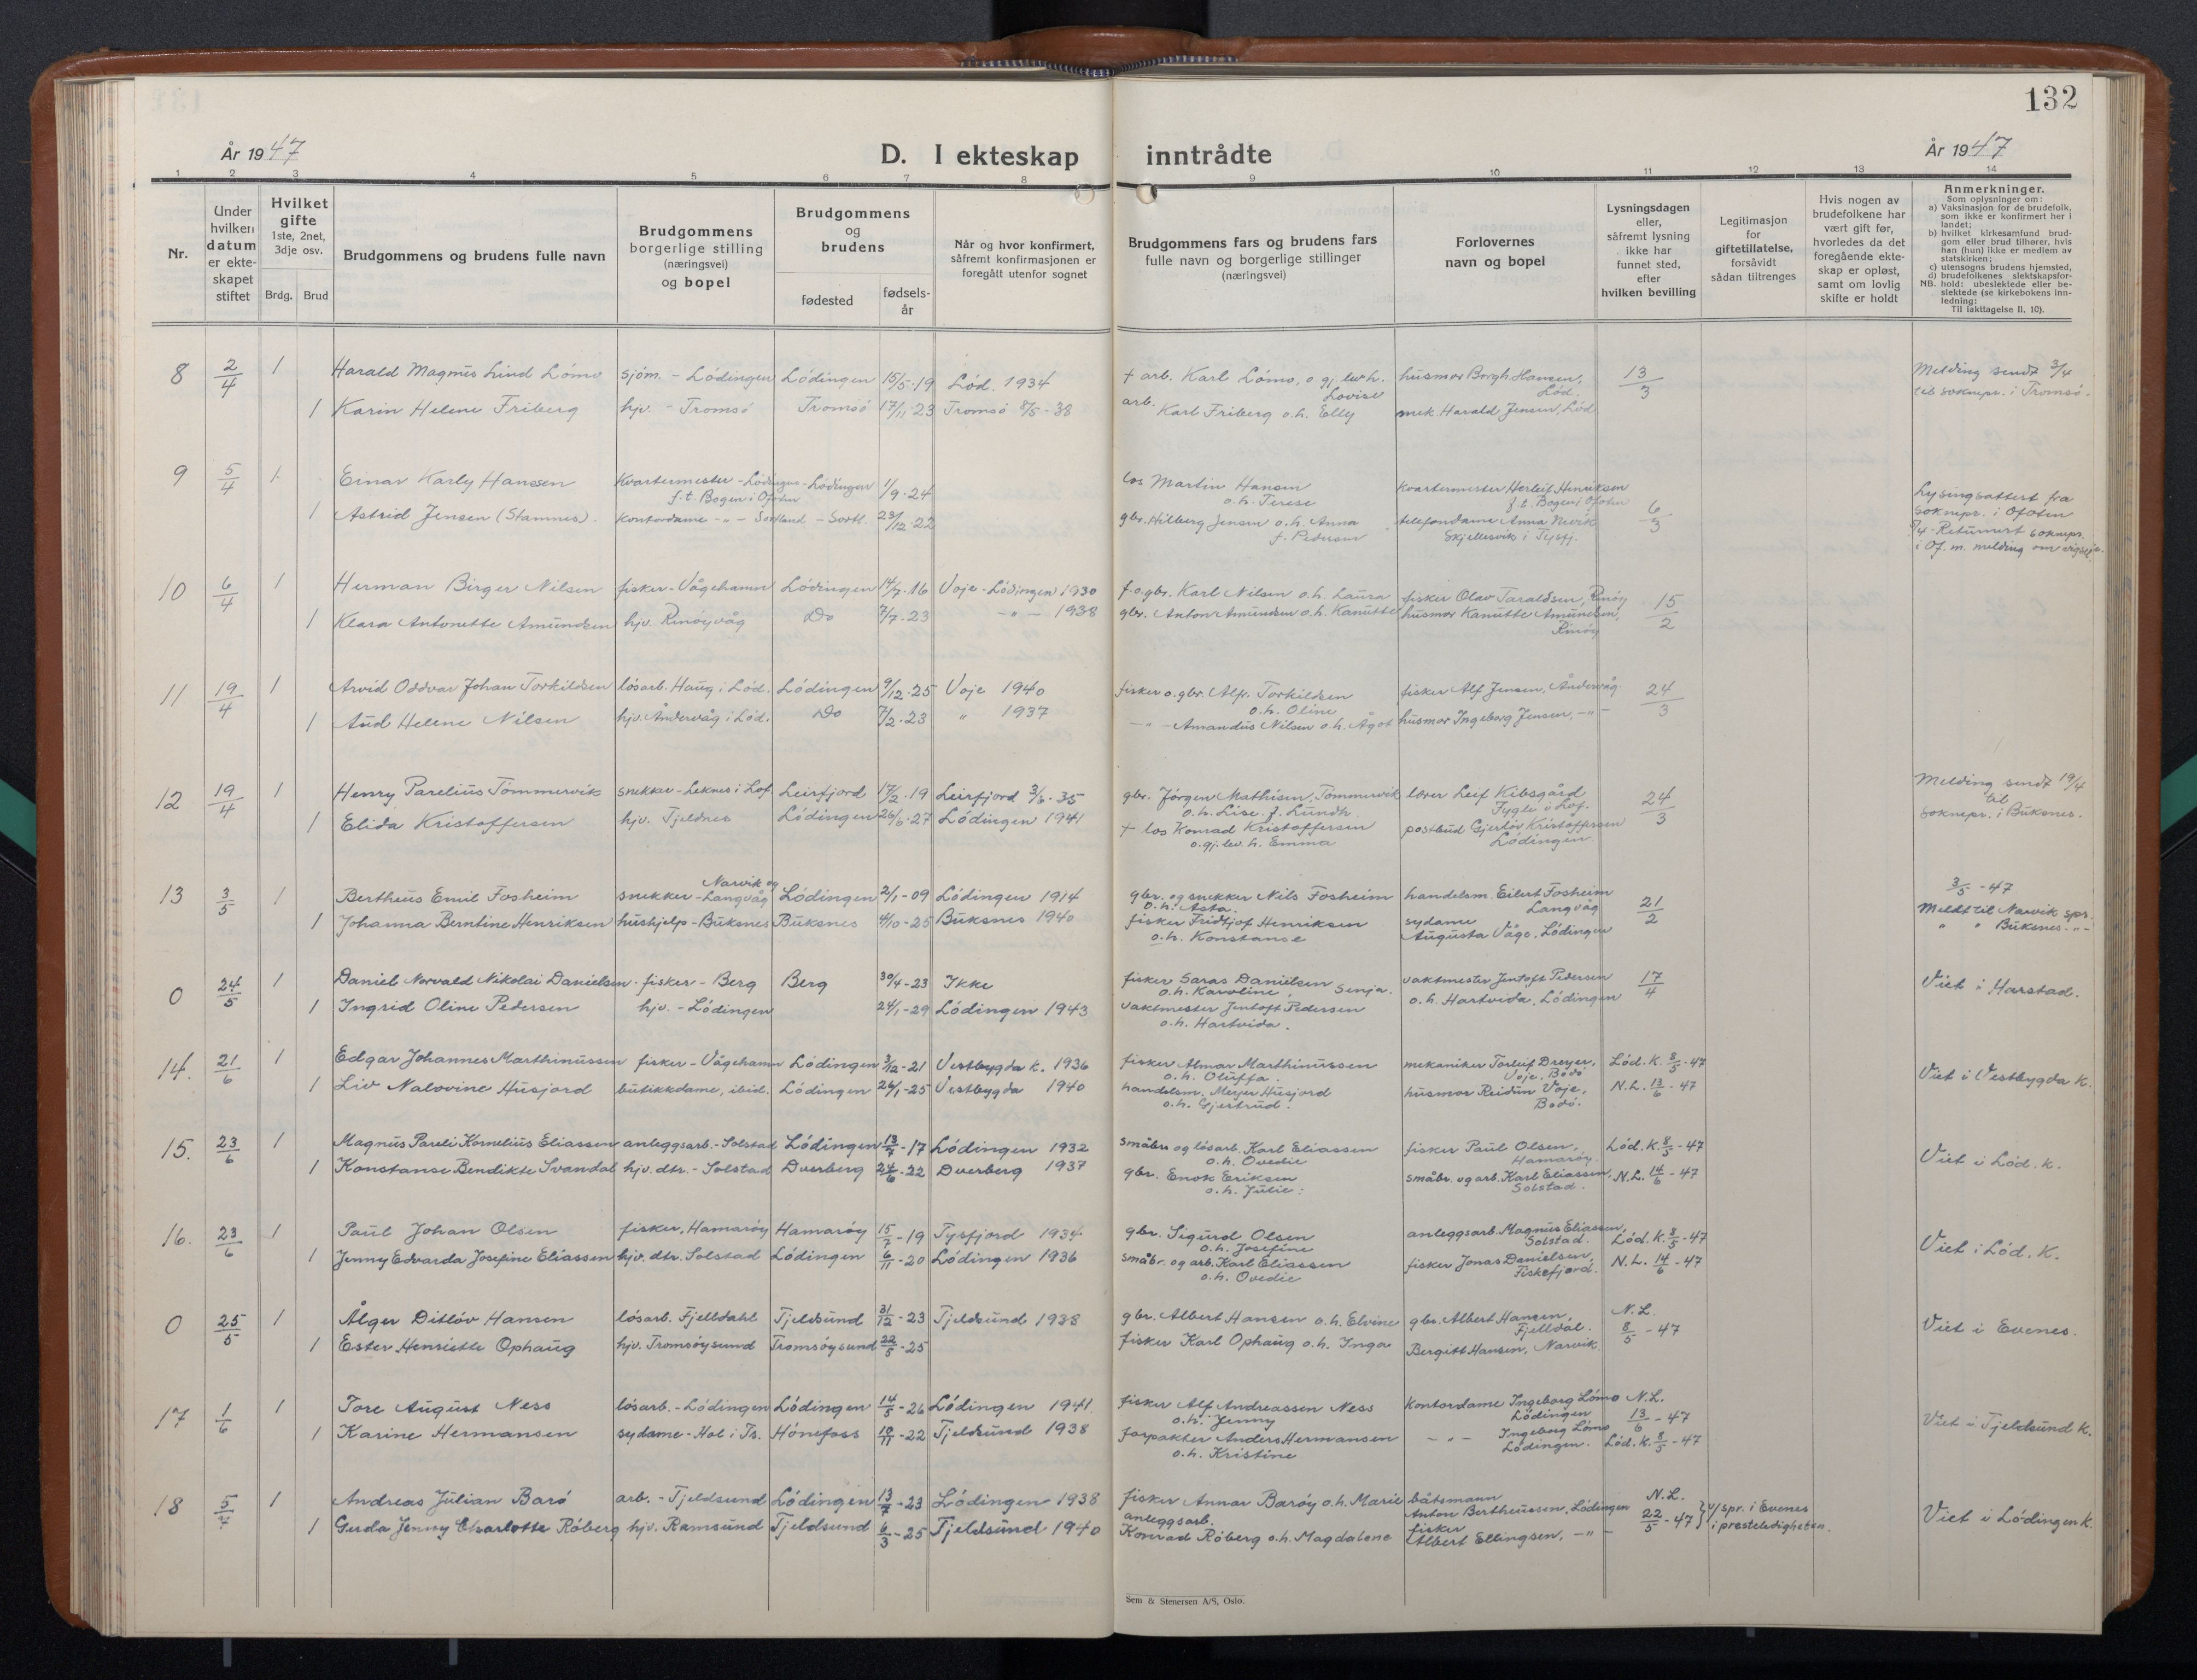 132
År 1947
D. I ekteskap inntrådte
År 1947
1 2 3 4 5 6 7 8 9 10 11 12 13 14
Nr.
Under hvilken datum er ekteskapet stiftet
Hvilket gifte 1ste, 2net, 3dje osv.
Brdg. Brud
Brudgommens og brudens fulle navn
Brudgommens borgerlige stilling (næringsvei) og bopel
Brudgommens og brudens
fødested
fødsels-år
Når og hvor konfirmert, såfremt konfirmasjonen er foregått utenfor sognet
Brudgommens fars og brudens fars fulle navn og borgerlige stillinger (næringsvei)
Forlovernes navn og bopel
Lysningsdagen eller, såfremt lysning ikke har funnet sted, efter hvilken bevilling
Legitimasjon for giftetillatelse, forsåvidt sådan tiltrenges
Hvis nogen av brudefolkene har vært gift før, hvorledes da det foregående ekteskap er opløst, samt om lovlig skifte er holdt
Anmerkninger.
Som oplysninger om:
a) Vaksinasjon for de brudefolk, som ikke er konfirmert her i landet;
b) hvilket kirkesamfund brudgom eller brud tilhører, hvis han (hun) ikke er medlem av statskirken;
c) utensogns brudens hjemsted,
d) brudefolkenes slektskapsforhold: ubeslektede eller beslektede (se kirkebokens innledning:
NB.
Til iakttagelse II. 10).
8 2/4 1 Harald Magnus Lind Lømo sjöm. - Lödingen Lödingen 15/5-19 Löd. 1934 + arb. Karl Lömo, o gj. lev h. Lovise husmor Borgh. Hansen, Löd. 13/3 Melding sendt 3/4
1 Karin Helene Friberg hjv. - Tromsö Tromsö 17/11-23 Tromsö 8/5-38 arb. Karl Friberg o.h. Elly mek. Harald Jensen, Löd til soknepr. i Tromsö.
9 5/4 1 Einar Karly Hanssen Kvartermester - Lödingen f.t. Bogen i Ofoten - Lödingen 1/9-24 los Martin Hansen o.h. Terese kvartermester Herleif Henriksen f.t. Bogen i Ofoten 6/3 Lysingsattest fra
1 Astrid Jensen (Stamnes). Kontordame -"- Sortland - Sortl. 23/12-22 gbr. Hilberg Jensen o.h. Anna f. Pedersen telefondame Anna Nevik Skjellesvik i Tysfj. soknepr. i Ofoten
/4 - Returnert soknepr. i Of. m. melding om vigsel.
10 6/4 1 Herman Birger Nilsen fisker - Vågehamn Lödingen 14/7-16 Voje - Lödingen 1930 f.o.gbr. Karl Nilsen o.h. Laura fisker Olav Taraldsen, Rinöy 15/2
1 Klara Antonette Amundsen hjv. Rinöyvåg Do 7/7-23 -"- 1938 gbr. Anton Amundsen o.h. Kanutte husmor Kanutte Amundsen, Rinöy
11 19/4 1 Arvid Oddvar Johan Torkildsen lösarb. Haug i Löd. Lödingen 9/12-25 Voje 1940 fisker o.gbr. Alfr. Torkildsen o.h. Oline fisker Alf Jensen, Åndervåg 24/3
1 Aud Helene Nilsen hjv. Åndervåg i Löd. Do 7/2-23 " 1937 -"- Amandus Nilsen o.h. Ågot husmor Ingeborg Jensen, -"-
12 19/4 1 Henry Parelius Tömmervik snekker - Leknes i Lof. Leirfjord 17/2-19 Leirfjord 3/6-35 gbr. Jörgen Mathisen Tömmervik o.h. Lise f. Lundh. lærer Leif Kibsgård Fygle i Lof. 24/3 Melding sendt 19/4 til
1 Elida Kristoffersen hjv. Tjeldnes Lödingen 26/6-27 Lödingen 1941 + los Konrad Kristoffersen o.gj. lev. h. Emma postbud Gjertöv Kristoffersen Lödingen soknepr. i Buksnes.
13 3/5 1 Bertheus Emil Fosheim snekker - Narvik og Langvåg Lödingen 2/1-09 Lödingen 1914 gbr. og snekker Nils Fosheim o.h. Asta handelsm. Eilert Fosheim Langvåg 21/2 3/5-47
1 Johanna Berntine Henriksen hushjelp - Buksnes Buksnes 4/10-25 Buksnes 1940 fisker Fridtjof Henriksen o.h. Konstanse sydame Augusta Våge, Lödingen Meldt til Narvik spr. " " Buksnes -"-
0 24/5 1 Daniel Norvald Nikolai Danielsen - fisker - Berg Berg 30/4-23 Ikke fisker Saras Danielsen o.h. Karoline, Senja. vaktmester Jentoft Pedersen 17/4 Viet i Harstad.
1 Ingrid Oline Pedersen hjv. - Lödingen 24/1-29 Lödingen 1943 vaktmester Jentoft Pedersen o.h. Hartvida. o.h. Hartvida, Lödingen
14. 21/6 1 Edgar Johannes Marthinussen fisker - Vågehamn Lödingen 3/12-21 Vestbygda k. 1936 fisker Almar Marthinussen o.h. Oluffa. mekaniker Torleif Dreyer, Voje, Bodö Löd. K. 8/5-47 Viet i Vestbygda K.
1 Liv Nalovine Husjord butikkdame, ibid. Lödingen 26/1-25 Vestbygda 1940 handelsm. Meyer Husjord o.h. Gjertrud. husmor Reidun Voje, Bodö. N.L. 13/6-47
15. 23/6 1 Magnus Pareli Kornelius Eliassen anleggsarb. - Solstad Lödingen 13/7-17 Lödingen 1932 småbr og lösarb. Karl Eliassen o.h. Ovedie fisker Paul Olsen, Hamaröy. Löd. K. 8/5-47 Viet i Löd. K.
1 Konstanse Bendikte Svandal hjv. dtr. - Solstad Dverberg 24/6-22 Dverberg 1937 gbr. Enok Eriksen o.h. Julie: småbr. og arb. Karl Eliassen, Solstad. N.L. 14/6-47
16. 23/6 1 Paul Johan Olsen fisker, Hamaröy Hamaröy 15/7-19 Tysfjord 1934 gbr. Sigurd Olsen o.h. Josefine anleggsarb. Magnus Eliassen, Solstad. Löd. K. 8/5-47 Viet i Löd. K.
1 Jenny Edvarda Josefine Eliassen hjv. dtr. Solstad Lödingen 6/11-20 Lödingen 1936 småbr. og arb. Karl Eliassen o.h. Ovedie fisker Jonas Danielsen, Fiskefjord. N.L. 14/6-47
0 25/5 1 Ålger Ditlöv Hansen lösarb. Fjelldahl Tjeldsund 31/12-23 Tjeldsund 1938 gbr. Albert Hansen o.h. Elvine gbr. Albert Hansen, Fjelldal. N.L. 8/5-47 Viet i Evenes.
1 Ester Henriette Ophaug hjv. Tromsöysund Tromsöysund 22/5-25 fisker Karl Ophaug o.h. Inga Bergitt Hansen, Narvik.
17 1/6 1 Tore August Ness lösarb. - Lödingen Lödingen 14/5-26 Lödingen 1941. fisker Alf Andreassen Ness o.h. Jenny Kontordame Ingeborg Lömo Lödingen N.L. 13/6-47 Viet i Tjeldsund K.
1 Karine Hermansen sydame - Hol i Ts. Hönefoss 18/11-22 Tjeldsund 1938 forpakter Anders Hermansen o.h. Kristine -"- Ingeborg Lömo Lödingen. Löd. K. 8/5-47
18 5/7 1 Andreas Julian Barö arb. - Tjeldsund Lödingen 13/7-23 Lödingen 1938 fisker Annar Baröy o.h. Marie båtsmann Anton Bertheussen, Lödingen N.L. 22/5-47 } v/spr. i Evenes i presteledigheten. Viet i Lödingen K.
1 Gerda Jenny Charlotte Röberg hjv. Ramsund Tjeldsund 6/3-25 Tjeldsund 1940 anleggsarb. Konrad Röberg o.h. Magdalene fisker Albert Ellingsen, -"-
Sem & Stenersen A/S, Oslo.